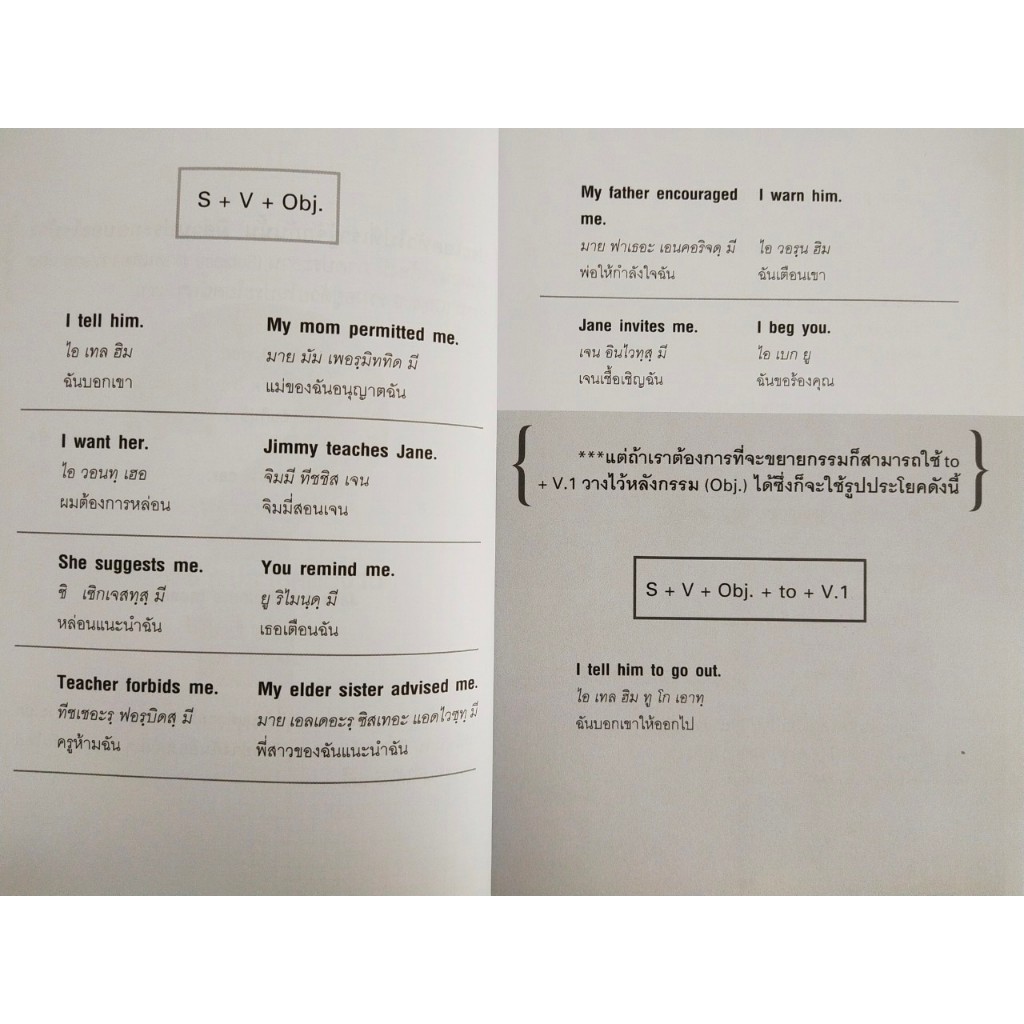 S + V + Obj.
I tell him.
ไอ เทล ฮิม
ฉันบอกเขา
My mom permitted me.
มาย มัม เพอรฺมิททิด มี
แม่ของฉันอนุญาตฉัน
I want her.
ไอ วอนทฺ เฮอ
ผมต้องการหล่อน
Jimmy teaches Jane.
จิมมี ทีชชิส เจน
จิมมี่สอนเจน
She suggests me.
ชิ เซิกเจสทฺสฺ มี
หล่อนแนะนำฉัน
You remind me.
ยู ริไมนฺดฺ มี
เธอเตือนฉัน
Teacher forbids me.
ทีชเชอะรฺ ฟอรฺบิดสฺ มี
ครูห้ามฉัน
My elder sister advised me.
มาย เอลเดอะรฺ ซิสเทอะ แอดไวซฺทฺ มี
พี่สาวของฉันแนะนำฉัน
My father encouraged
me.
มาย ฟาเธอะ เอนคอริจดฺ มี
พ่อให้กำลังใจฉัน
I warn him.
ไอ วอรฺน ฮิม
ฉันเตือนเขา
Jane invites me.
เจน อินไวทฺสฺ มี
เจนเชื้อเชิญฉัน
I beg you.
ไอ เบก ยู
ฉันขอร้องคุณ
***แต่ถ้าเราต้องการที่จะขยายกรรมก็สามารถใช้ to
+ V.1 วางไว้หลังกรรม (Obj.) ได้ซึ่งก็จะใช้รูปประโยคดังนี้
S + V + Obj. + to + V.1
I tell him to go out.
ไอ เทล ฮิม ทู โก เอาทฺ
ฉันบอกเขาให้ออกไป